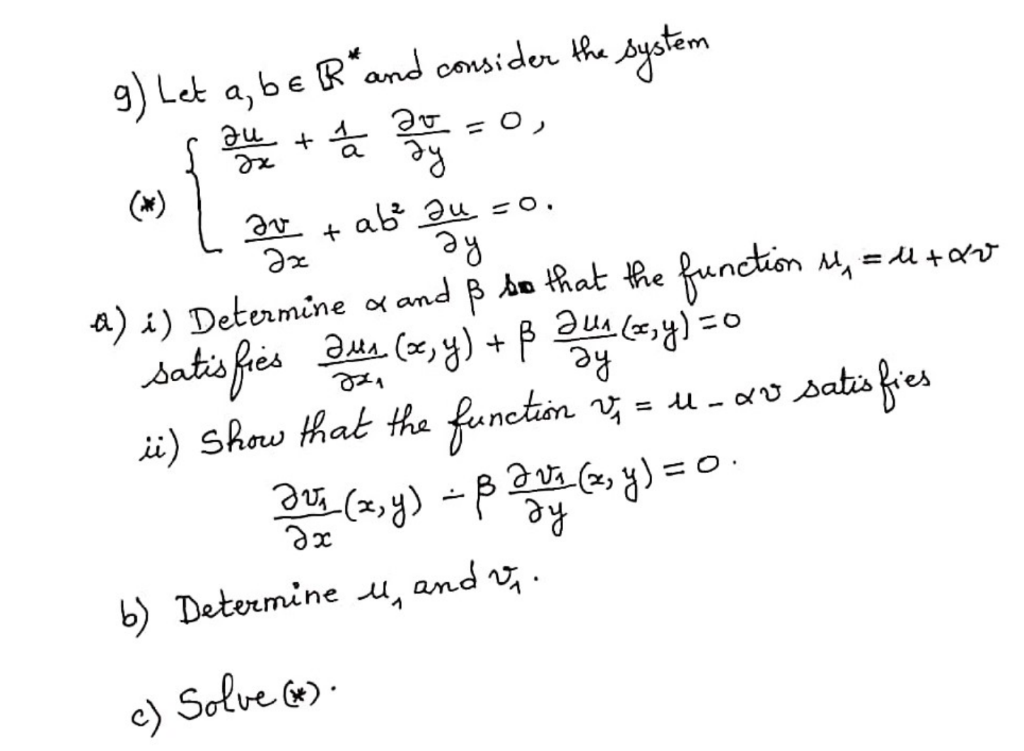 9) Let a, b ∈ ℝ* and consider the system
(*) { ∂u/∂x + 1/a ∂v/∂y = 0,
∂v/∂x + ab² ∂u/∂y = 0.
a) i) Determine α and β so that the function u₁ = u + αv
satisfies ∂u₁/∂x₁ (x, y) + β ∂u₁/∂y (x, y) = 0
ii) Show that the function v₁ = u - αv satisfies
∂v₁/∂x (x, y) - β ∂v₁/∂y (x, y) = 0.
b) Determine u₁ and v₁.
c) Solve (*).